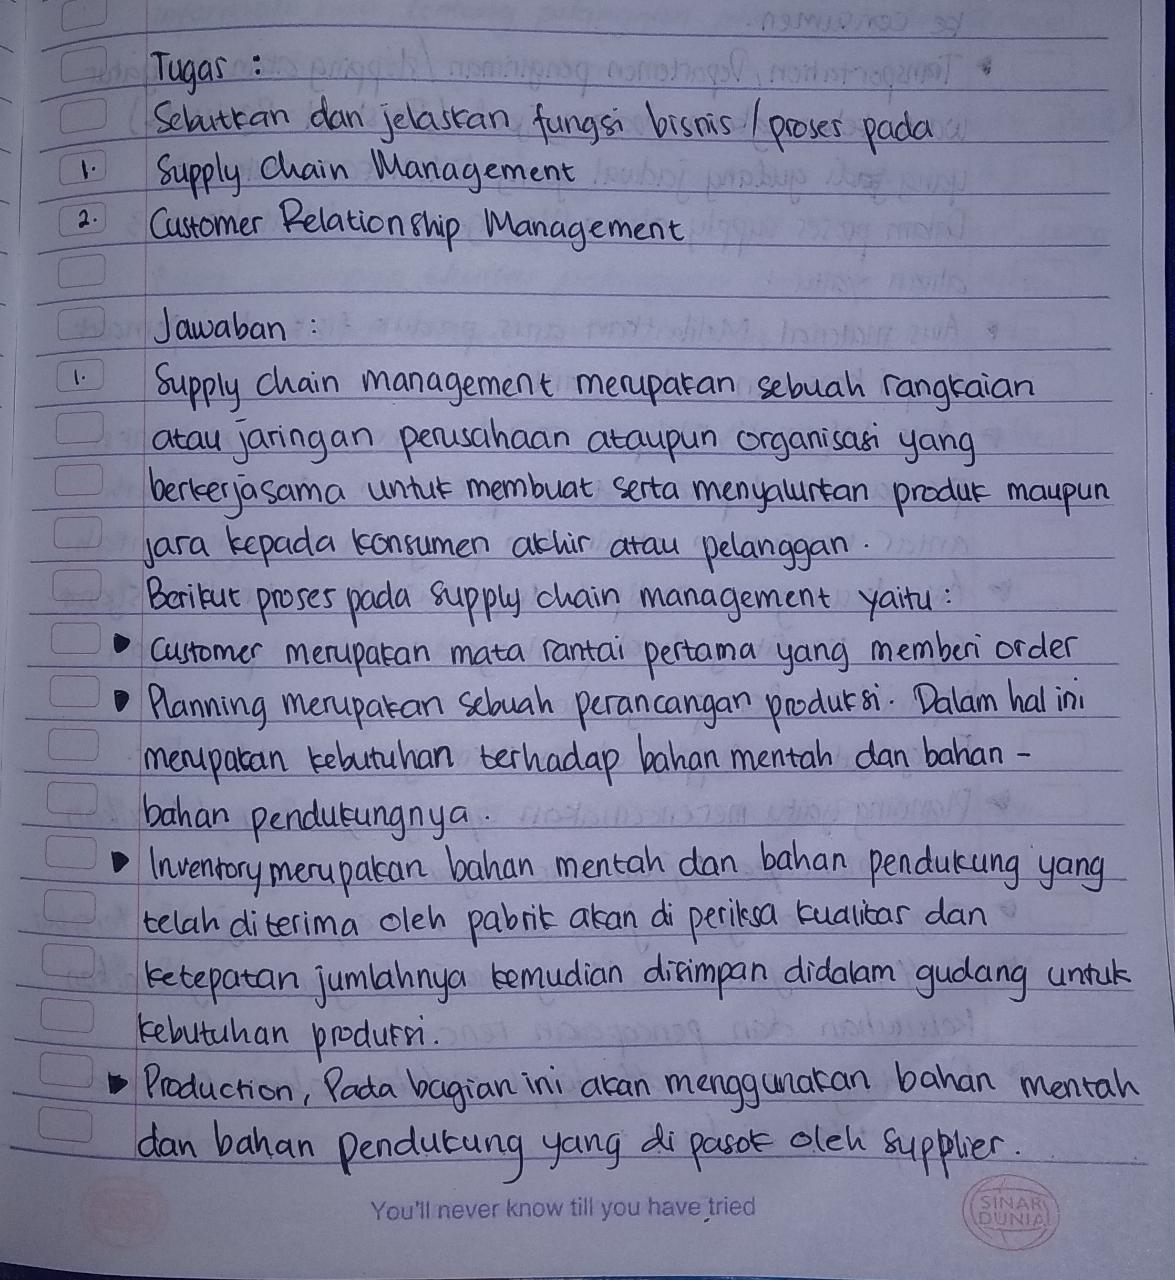 Tugas :
Sebutkan dan jelaskan fungsi bisnis / proses pada
1. Supply Chain Management
2. Customer Relationship Management
Jawaban :
1. Supply chain management merupakan sebuah rangkaian
atau jaringan perusahaan ataupun organisasi yang
berkerjasama untuk membuat serta menyalurkan produk maupun
jasa kepada konsumen akhir atau pelanggan.
Berikut proses pada supply chain management yaitu :
Customer merupakan mata rantai pertama yang memberi order
Planning merupakan sebuah perancangan produksi. Dalam hal ini
merupakan kebutuhan terhadap bahan mentah dan bahan -
bahan pendukungnya.
Inventory merupakan bahan mentah dan bahan pendukung yang
telah diterima oleh pabrik akan di periksa kualitas dan
ketepatan jumlahnya kemudian disimpan didalam gudang untuk
kebutuhan produksi.
Production, Pada bagian ini akan menggunakan bahan mentah
dan bahan pendukung yang di pasok oleh supplier.
You'll never know till you have tried
SINAR
DUNIA